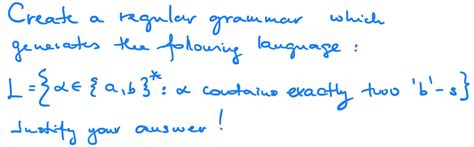 Create a regular grammar which
generates the following language :
L = { α ∈ {a,b}* : α contains exactly two 'b'-s}
Justify your answer !